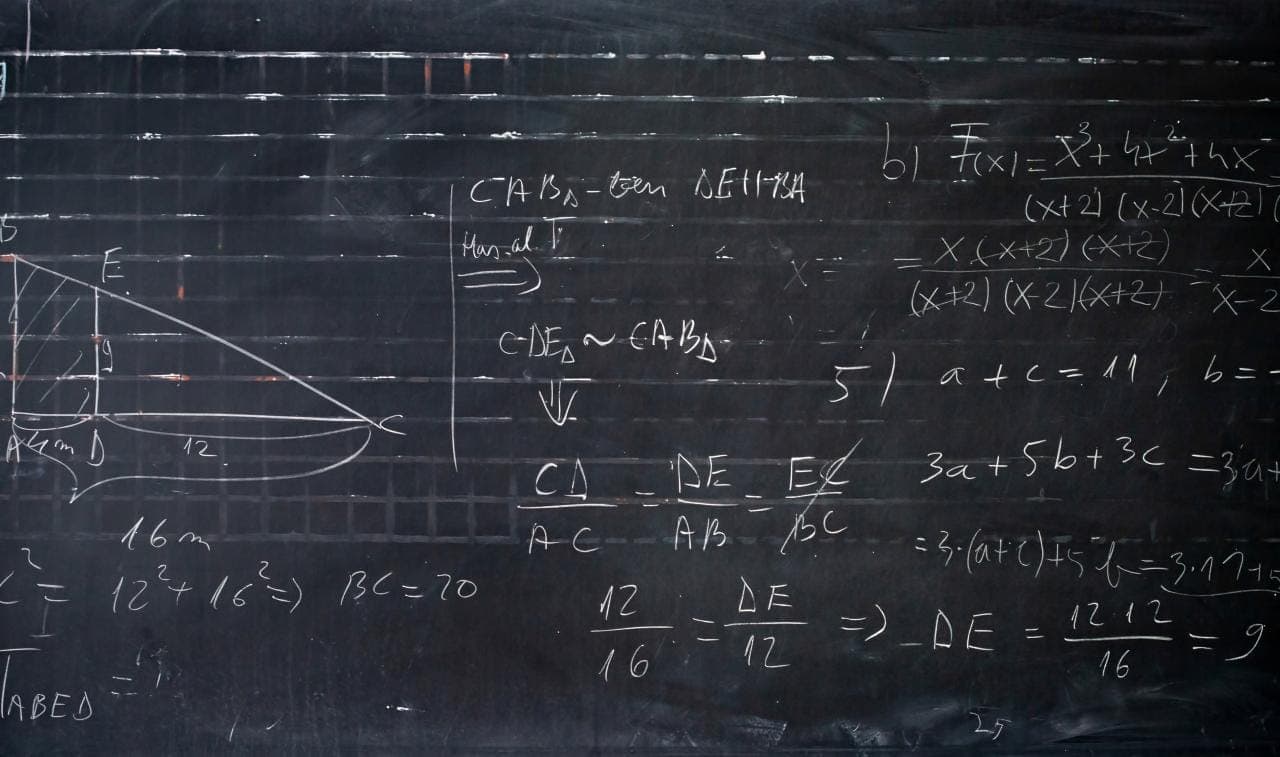 B
E
9
A 4m D 12 C
16 m
² = 12² + 16² => BC = 20
ABED =
CAB△ - DE || BA
=>
CDE△ ~ CAB△
⇓
CD/AC = DE/AB = EC/BC
12/16 = DE/12 => DE = 12·12/16 = 9
b) F(x) = x³ + 4x² + 4x / (x+2)(x-2)(x+2)
= x·(x+2)(x+2) / (x+2)(x-2)(x+2) = x / x-2
x =
5) a + c = 11, b = -
3a + 5b + 3c = 3a +
= 3·(a+c) + 5·b = 3·11 + 5